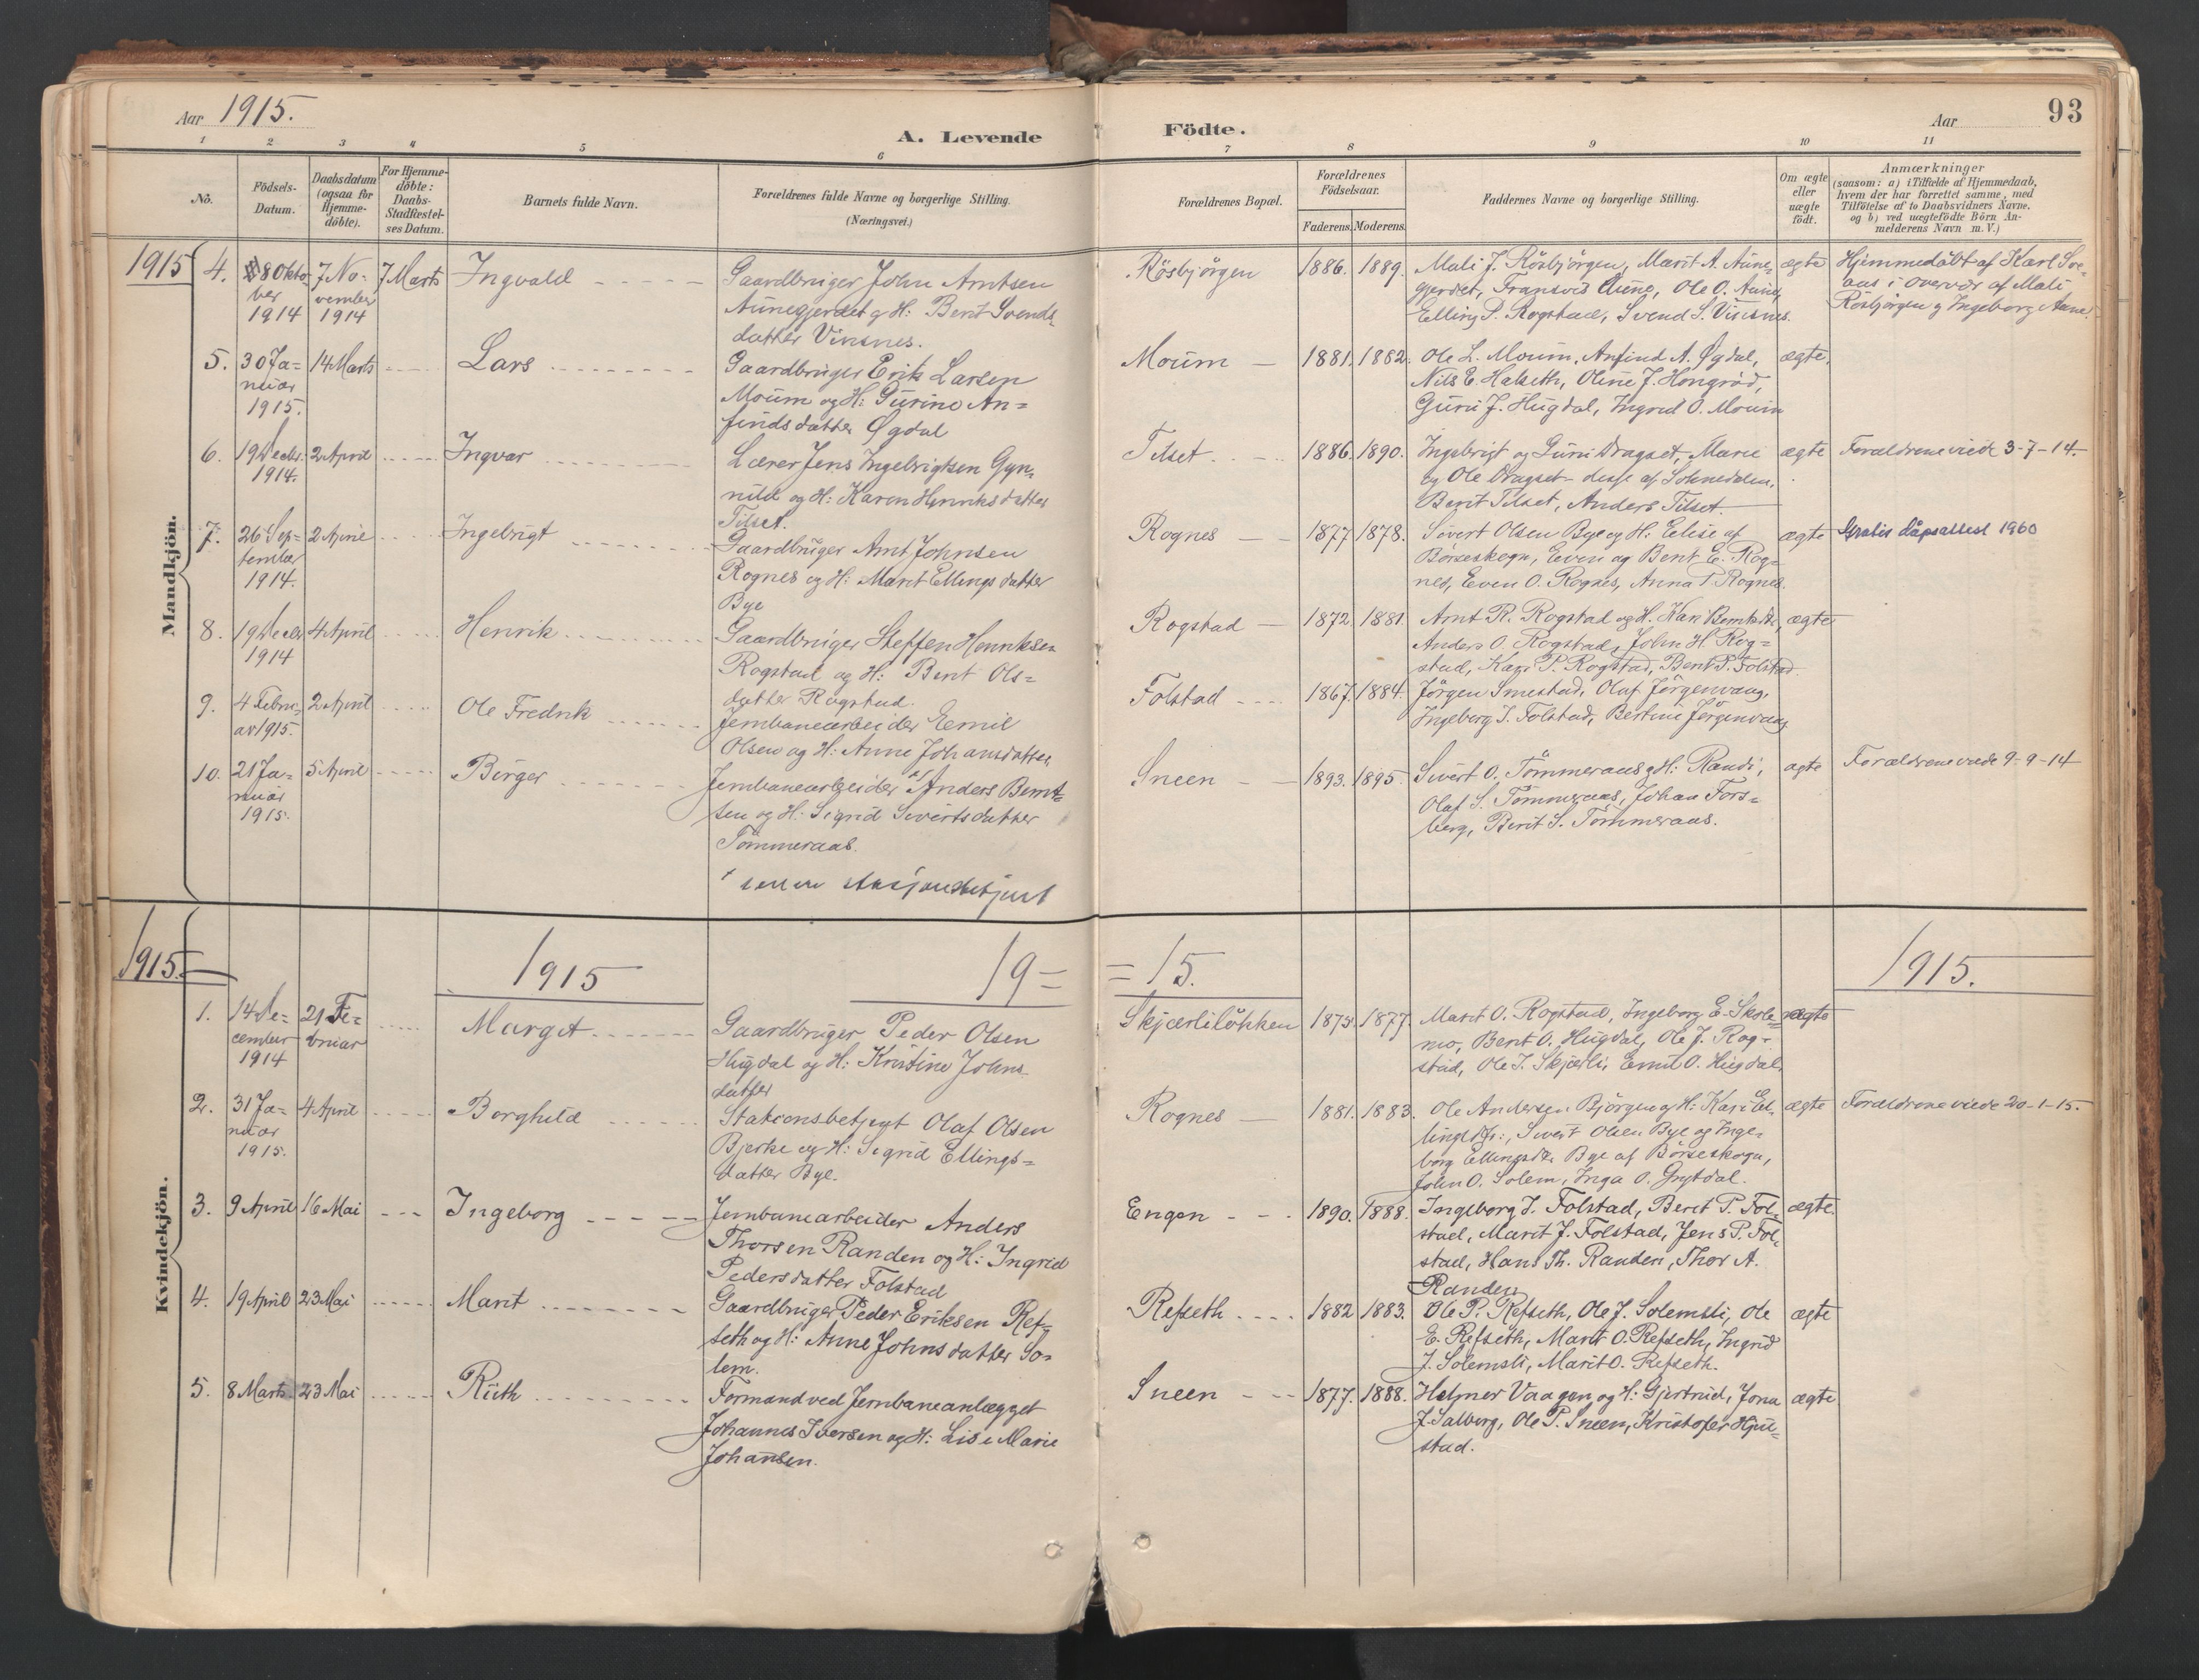 Aar 1915.
A. Levende Födte.
Aar
93
1 2 3 4 5 6 7 8 9 10 11
No.
Födsels-
Datum.
Daabsdatum
(ogsaa for
Hjemme-
döbte).
For Hjemme-
döbte:
Daabs-
Stadfæstel-
ses Datum.
Barnets fulde Navn.
Forældrenes fulde Navne og borgerlige Stilling.
(Næringsvei.)
Forældrenes Bopæl.
Forældrenes
Födselsaar.
Faderens. Moderens.
Faddernes Navne og borgerlige Stilling.
Om ægte
eller
uægte
födt.
Anmærkninger
(saasom: a) i Tilfælde af Hjemmedaab,
hvem der har forrettet samme, med
Tilföielse af to Daabsvidners Navne.
og b) ved uægtefödte Börn An-
melderens Navn m. V.)
Mandkjön.
1915
4.
8 Okto-
ber
1914
7 No-
vember
1914
7 Marts
Ingvald
Gaardbruger John Arntsen
Aunegjerdet og H: Berit Svends-
datter Vinsnes.
Rösbjörgen
1886. 1889.
Mali J. Rösbjörgen, Marit A. Aune-
gjerdet, Fransvis Aune, Ole O. Aune,
Elling P. Rogstad, Svend S. Vinsnes.
ægte
Hjemmedöbt af Karl Sve-
aas i overvær af Mali
Rösbjörgen og Ingeborg Aune.
5.
30 Ja-
nuar
1915.
14 Marts
Lars
Gaardbruger Erik Larsen
Moum og H: Gurine An-
findsdatter Øgdal
Moum
1881. 1882.
Ole L. Moum, Anfind A. Øgdal,
Nils E. Halseth, Oline J. Hongröd,
Guru J. Hugdal, Ingrid O. Moum
ægte.
6.
19 Decbr.
1914.
2 April
Ingvar
Lærer Jens Ingebrigtsen Gyn-
nild og H: Karen Henriksdatter
Tilset.
Tilset
1886. 1890.
Ingebrigt og Guru Dragset, Marie
og Ole Dragset - disse af Soknedalen,
Berit Tilset, Anders Tilset.
ægte
Forældrene viede 3-7-14.
7.
26 Sep-
tember
1914.
2 April
Ingebrigt
Gaardbruger Arnt Johnsen
Rognes og H: Marit Ellingsdatter
Bye
Rognes
1877 1878.
Sivert Olsen Bye og H: Elise af
Börseskogn, Even og Berit E. Rog-
nes, Even O. Rognes, Anna T. Rognes.
ægte
Gratis dåpsattest 1960
8.
19 Decbr
1914
4 April
Henrik
Gaardbruger Steffen Henriksen
Rogstad og H: Berit Ols-
datter Rogstad.
Rogstad
1872 1881.
Arnt R. Rogstad og H. Kari Berntsdt.,
Anders O. Rogstad, John H. Rog-
stad, Kari P. Rogstad, Berit P. Folstad.
ægte
9.
4 Febru-
ar 1915.
2 April
Ole Fredrik
Jernbanearbeider Emil
Olsen og H: Anne Johansdatter
Folstad
1867. 1884.
Jörgen Smestad, Olaf Jörgenvaag,
Ingeborg I. Folstad, Bertine Jørgenvaag
10.
21 Ja-
nuar
1915.
5 April
Birger
Jernbanearbeider Anders Bernt-
sen og H: Sigrid Sivertsdatter
Tömmeraas.
Sneen
1893. 1895.
Sivert O. Tömmeraas og H: Randi,
Olaf S. Tömmeraas, Johan Fors-
berg, Berit S. Tömmeraas.
ægte
Forældrene viede 9-9-14
Kvindekjön.
1915.
1915
19=
=15.
1915.
1.
14 De-
cember
1914
21 Fe-
bruar
Margit
Gaardbruger Peder Olsen
Hugdal og H: Kristine Johns-
datter
Skjærliløkken
1875. 1877.
Marit O. Rogstad, Ingeborg E. Skole-
mo, Berit O. Hugdal, Ole J. Rog-
stad, Ole J. Skjærli, Emil O. Hugdal.
ægte
2.
31 Ja-
nuar
1915.
4 April
Borghild
Stationsbetjent Olaf Olsen
Bjerke og H: Sigrid Ellings-
datter Bye.
Rognes
1881. 1883.
Ole Andersen Björgen og H: Kari El-
lingsdtr., Sivert Olsen Bye og Inge-
borg Ellingsdtr. Bye af Börseskogn,
John O. Solem, Inga O. Grytdal.
ægte
Forældrene viede 20-1-15.
3.
9 April
16 Mai
Ingeborg
Jernbanearbeider Anders
Thorsen Randen og H: Ingrid
Pedersdatter Folstad
Engen
1890. 1888.
Ingeborg J. Folstad, Berit P. Fol-
stad, Marit J. Folstad, Jens P. Fol-
stad, Hans Th. Randen, Thor A.
Randen
ægte.
4.
19 April
23 Mai
Marit
Gaardbruger Peder Eriksen Ref-
seth og H: Anne Johnsdatter So-
lem.
Refseth
1882 1883.
Ole P. Refseth, Ole J. Solemsli, Ole
E. Refseth, Marit O. Refseth, Ingrid
J. Solemsli, Marit O. Refseth.
ægte
5.
8 Marts
23 Mai
Ruth
Formand ved Jernbaneanlægget
Johannes Iversen og H: Lise Marie
Johansen.
Sneen
1877. 1888.
Helmer Vaagen og H: Gjertrud, Jona
J. Salberg, Ole P. Sneen, Kristofer Hju-
stad.
ægte